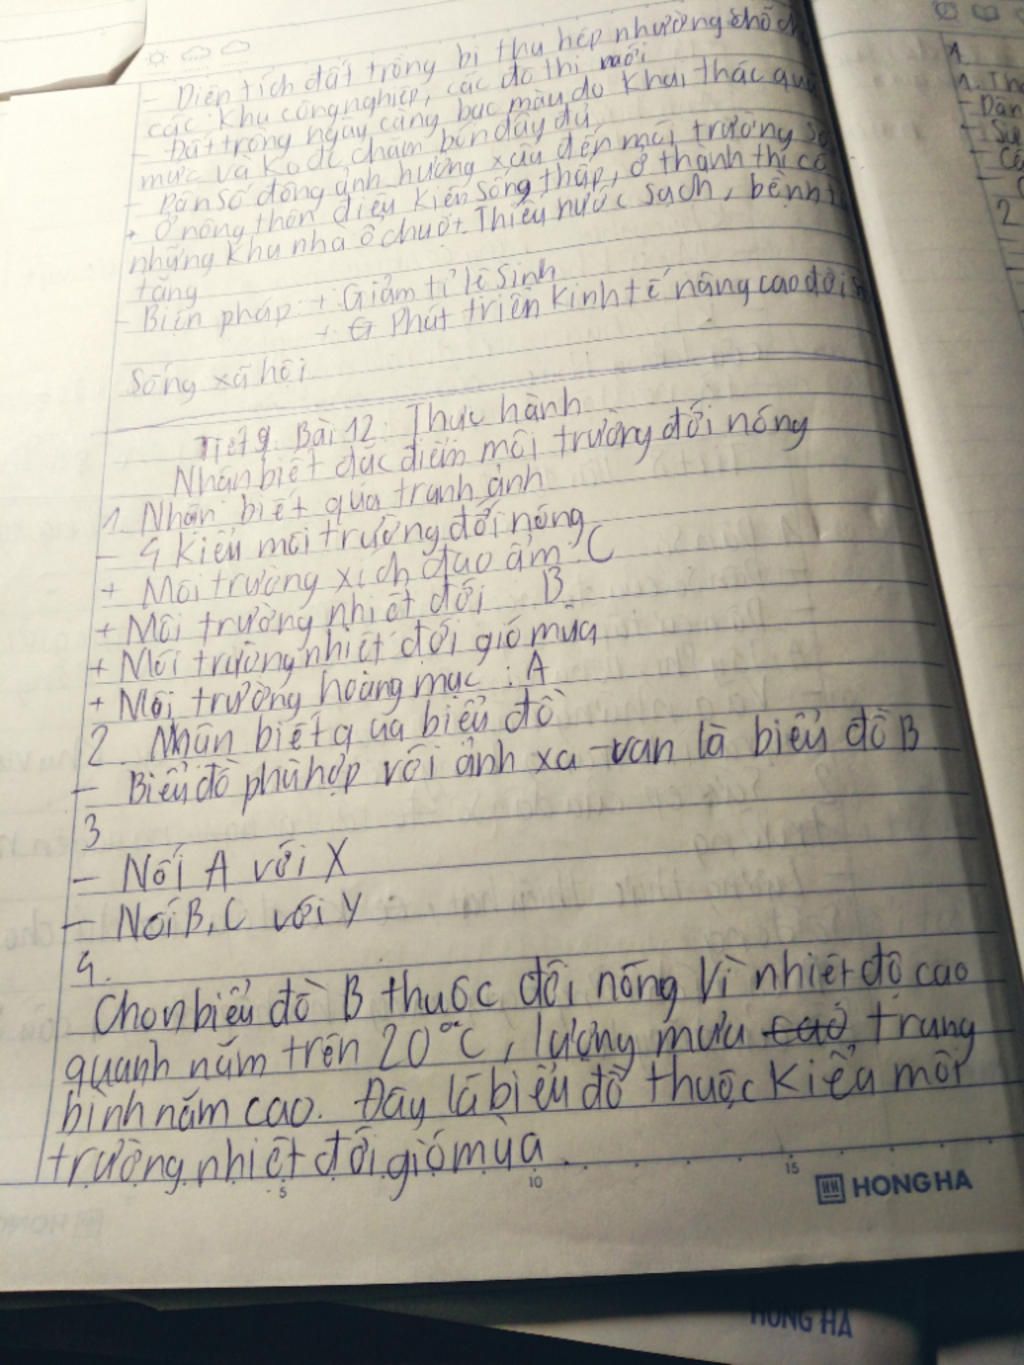 - Diện tích đất trồng bị thu hẹp nhường chỗ ch
các khu công nghiệp, các đô thị mới
- Đất trồng ngày càng bạc màu do khai thác quá
mức và ko đc chăm bón đầy đủ
- Dân số đông ảnh hưởng xấu đến môi trường số
+ Ở nông thôn điều kiện sống thấp, ở thành thị có
những khu nhà ổ chuột. Thiếu nước sạch, bệnh t
tăng
- Biện pháp: + Giảm tỉ lệ sinh
+ Phát triển kinh tế nâng cao đời s
sống xã hội
Tiết 9. Bài 12: Thực hành
Nhận biết đặc điểm môi trường đới nóng
1. Nhận biết qua tranh ảnh
- 4 kiểu môi trường đới nóng
+ Môi trường xích đạo ẩm: C
+ Môi trường nhiệt đới B
+ Môi trường nhiệt đới gió mùa
+ Môi trường hoang mạc: A
2. Nhận biết qua biểu đồ
- Biểu đồ phù hợp với ảnh xa-van là biểu đồ B
3
- Nối A với X
- Nối B, C với Y
4.
Chọn biểu đồ B thuộc đới nóng vì nhiệt độ cao
quanh năm trên 20°C, lượng mưa cao trung
bình năm cao. Đây là biểu đồ thuộc kiểu môi
trường nhiệt đới gió mùa.
5 10 15
HONG HA
HONG HA
1
1. Th
- Dân
- Sự
2